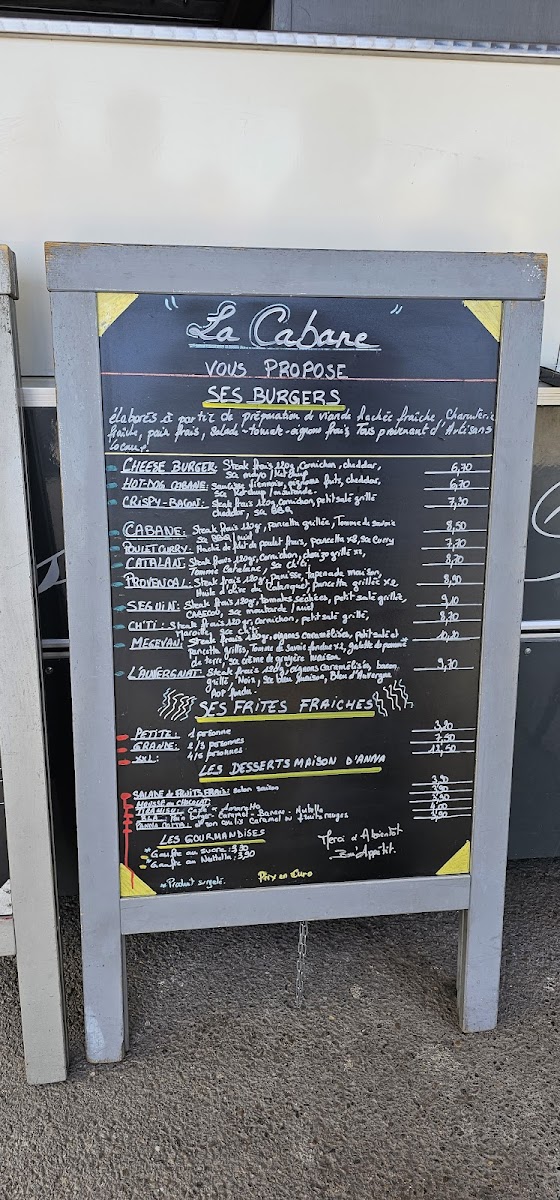 "La Cabane"
VOUS PROPOSE
SES BURGERS
élaborés à partir de préparation de viande hachée fraîche, Charcuterie
fraîche, pain frais, salade-tomate-oignons frais Tous provenant d'Artisans
locaux.
CHEESE BURGER: Steak frais 120g, Cornichon, cheddar, 6,70
sa mayo / Ketchup
HOT-DOG CABANE: saucisse Viennoise, oignons frits, cheddar, 6,70
sa Ketchup / moutarde.
CRISPY-BACON: steak frais 120g, cornichon, petit salé grillé 7,50
cheddar, sa BBQ
CABANE: Steak frais 120g, Pancetta grillée, Tomme de Savoie 8,50
sa BBQ / miel
POULET CURRY: Haché de filet de poulet frais, pancetta x2, sa curry 7,70
CATALAN: Steak frais 120g, Cornichon, chorizo grillé x2, 8,70
Tomme Catalane, sa ch'ti
PROVENÇAL: Steak frais 120g, panisse, tapenade maison, 8,90
Huile d'olive du pancetta grillée x2
SEGUIN: Steak frais 120g, tomates séchées, petit salé grillé, 9,10
CABECOU, sa moutarde / miel
CH'TI: Steak frais 120g, Cornichon, petit salé grillé, 8,70
Maroille, sa ch'ti
MEGEVAN: Steak frais 120g, oignons caramélisés, petit salé et
Pancetta grillés, Tomme de Savoie fondue x2, galette de pomme
de terre, sa crème de gruyère maison.
L'AUVERGNAT: Steak frais 120g, oignons Caramélisés, bacon, 9,70
grillé, Noix, sa bleu maison, Bleu d'Auvergne
AOP fondu.
SES FRITES FRAICHES
PETITE: 1 personne 3,80
GRANDE: 2/3 personnes 7,50
XXL: 4/5 personnes
LES DESSERTS MAISON D'ANNA
SALADE de FRUITS FRAIS: selon saison 3,90
MOUSSE au CHOCOLAT: 3,90
TIRAMISU: Café & Amaretto 3,90
Pain burger - Caramel - Banane - Nutella 4,00
PANNA COTTA: coulis Caramel ou fruits rouges 3,90
LES GOURMANDISES
Gaufre au sucre: 3,30
Gaufre au Nutella: 3,90
Merci & A bientôt
Bon Appétit.
* Produit surgelé.
Prix en Euro